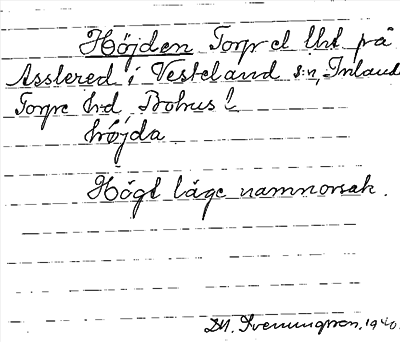 Höjden Torp el lht på
Asslered i Vesteland s:n, Inland
Torpe hd, Bohus l
höjda.
Högt läge namnorsak.
D.H. Svenungsson, 1940.